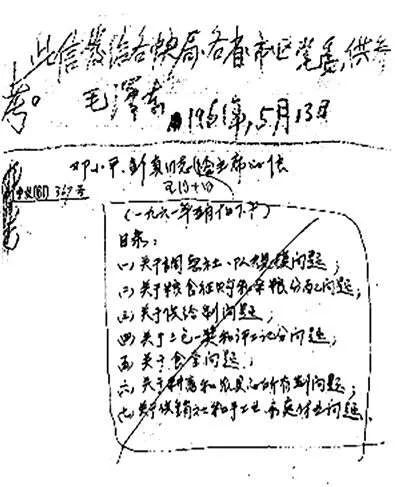 此信发给各中央局,各省市区党委,供参
考。
毛泽东
1961年,5月13日
邓小平、彭真同志给主席的信
五月十日
中发(61) 367号
(一九六一年五月十日下午)
目录:
(一)关于调整社、队规模问题;
(二)关于粮食征购和余粮分配问题;
(三)关于供给制问题;
(四)关于三包一奖和评工记分问题;
(五)关于食堂问题;
(六)关于耕畜和农具的所有制问题;
(七)关于供销社和手工业、家庭付业问题